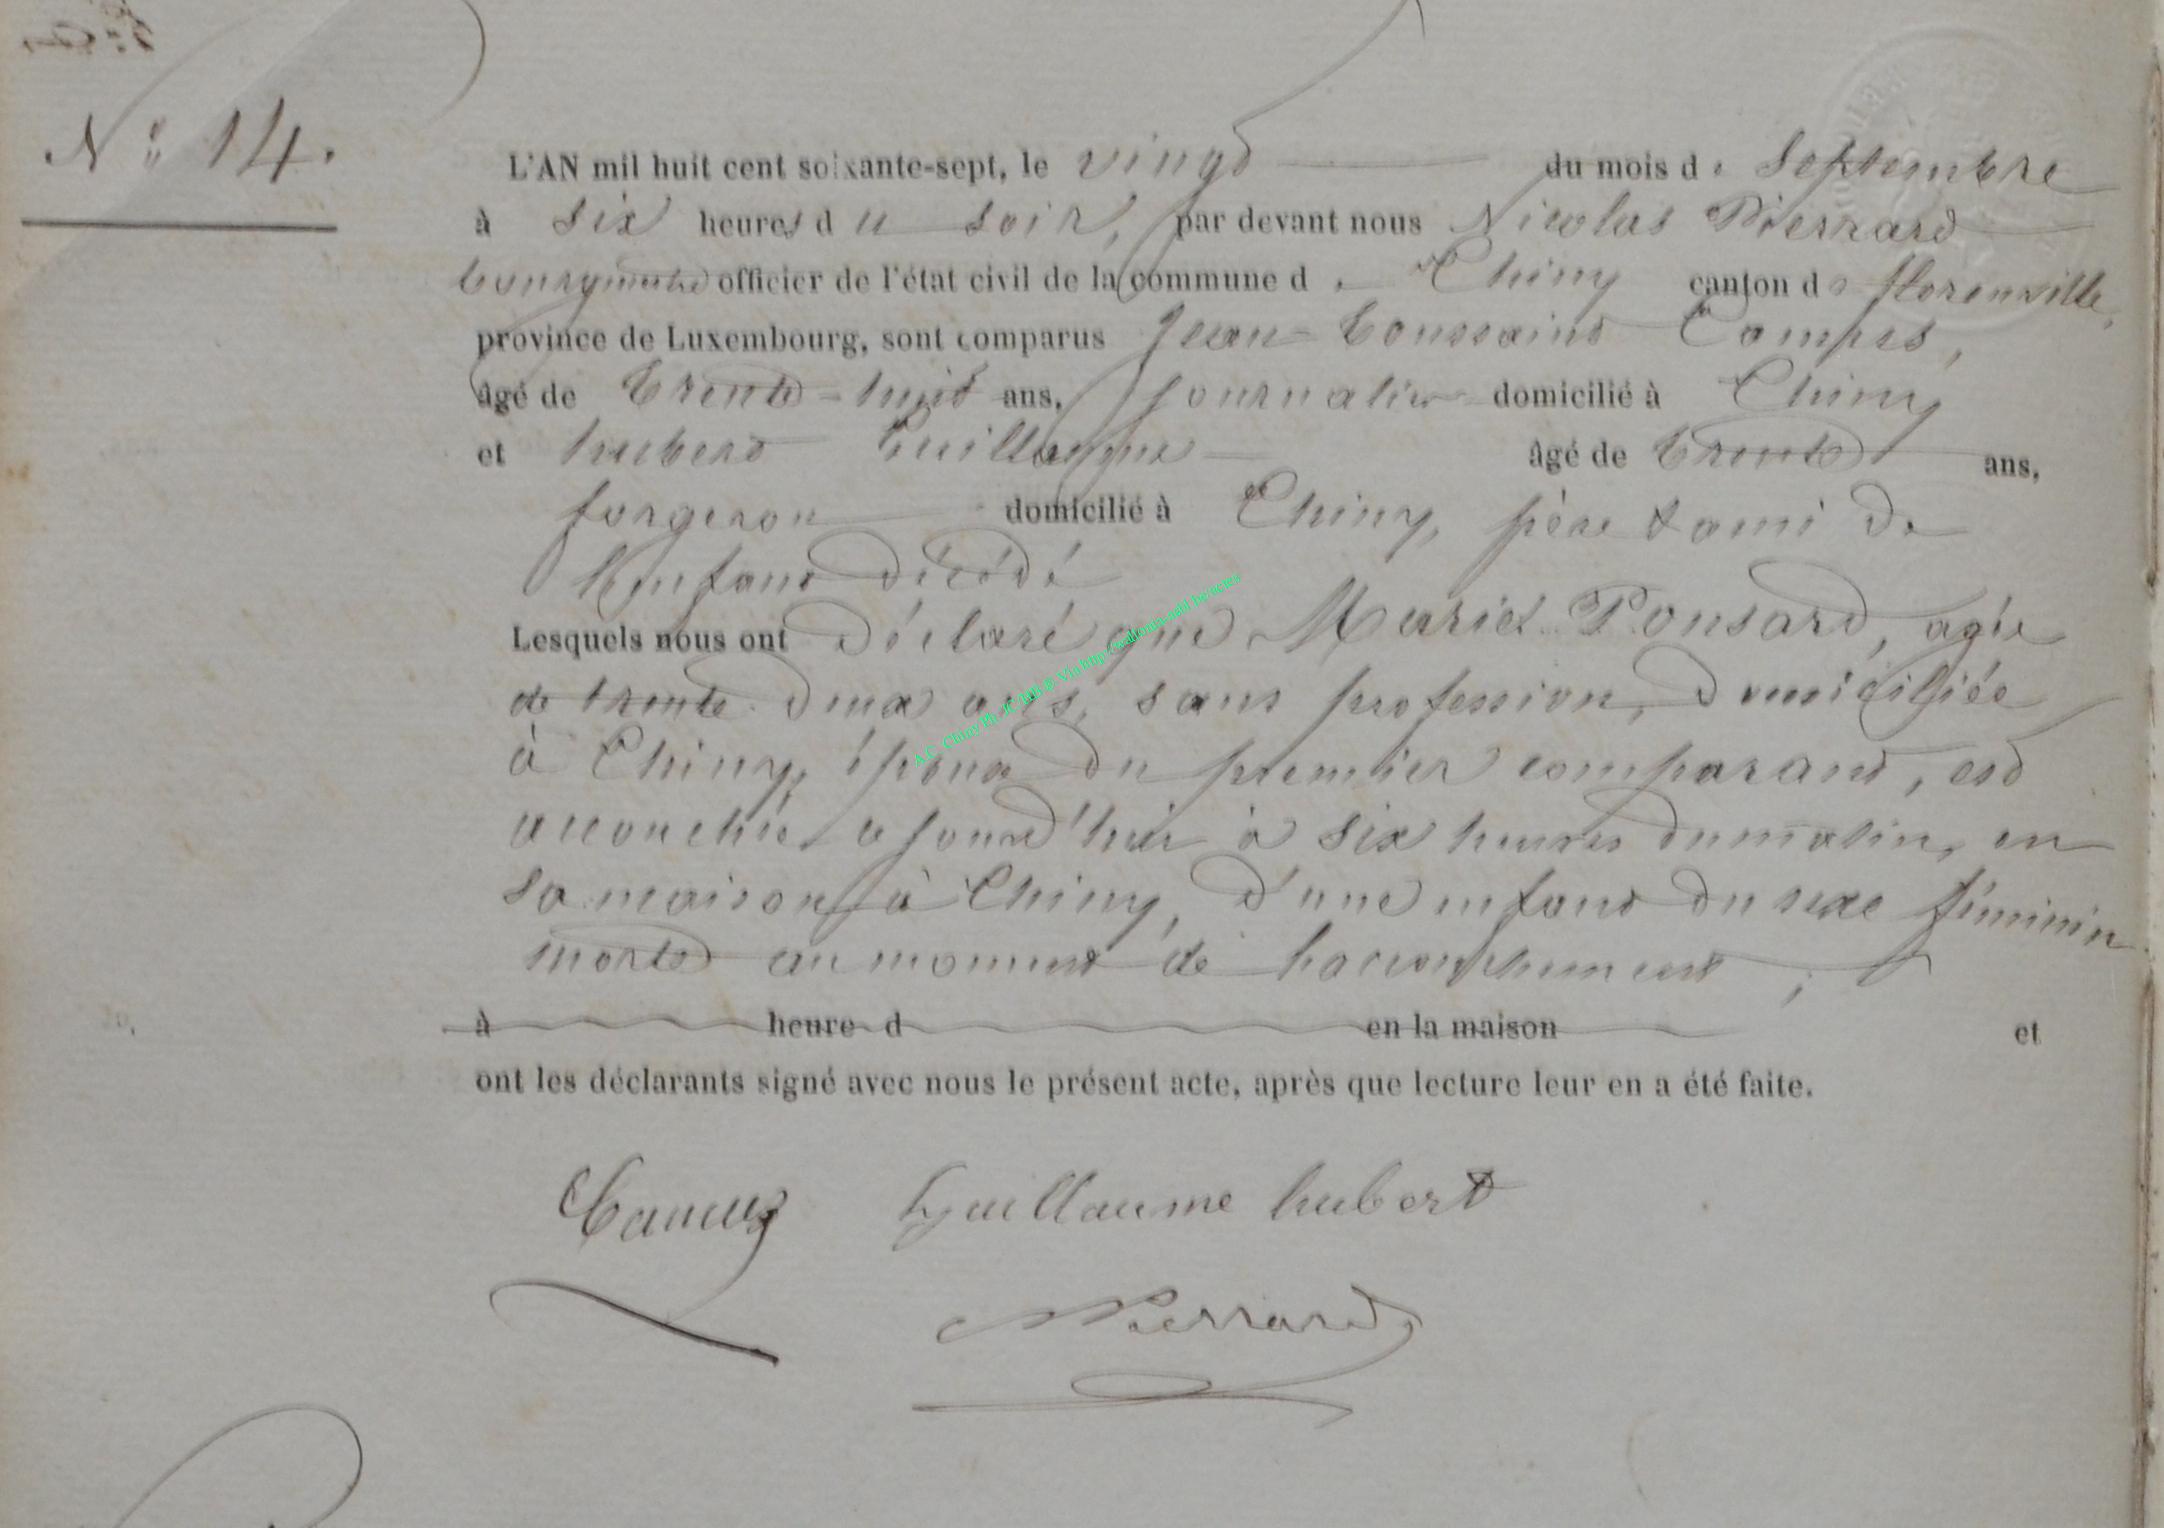 N° 14.
L'AN mil huit cent soixante-sept, le vingt du mois de Septembre
à six heures du soir, par devant nous Nicolas Pierrard
bourgmestre officier de l'état civil de la commune de Chiny canton de florenville,
province de Luxembourg, sont comparus Jean-Toussaint
âgé de trente-huit ans, journalier domicilié à Chiny
et hubert Guillaume âgé de trente ans,
forgeron domicilié à Chiny, père & ami de
l'enfant décédé
Lesquels nous ont déclaré que Marie Ponsard, agée
de trente deux ans, sans profession, domiciliée
à Chiny, époux du premier comparant, est
accouchée ce jourd'hui à six heures du matin, en
sa maison à Chiny, d'une enfant du sexe féminin
morte au moment de l'accouchement ;
à heure d en la maison et
ont les déclarants signé avec nous le présent acte, après que lecture leur en a été faite.
Guillaume hubert
NPierrard
A.C. Chiny Ph. JC/HB @ Via http://wallonia-asbl.be/actes